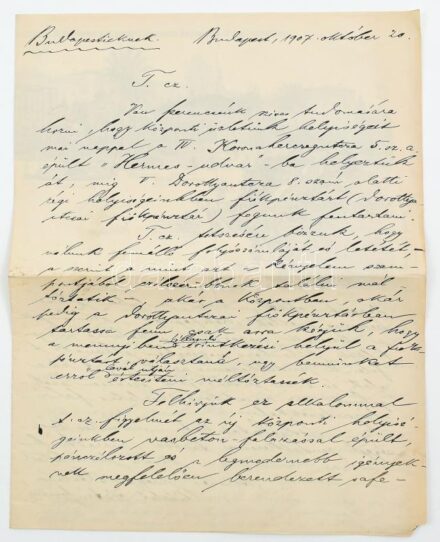 Budapestieknek. Budapest, 1907. október 20.
T. cz.
Van szerencsénk nb. tudomására
hozni, hogy központi üzletünk helyiségeit
mai nappal a IV. Koronaherczegutcza 5. sz. a.
épült „Hermes-udvar"-ba helyeztük
át, míg V. Dorottyautcza 8. szám alatti
régi helyiségeinkben fiókpénztárt (Dorottya
utczai fiókpénztár) fogunk fentartani.
T. cz. tetszésére bízzuk, hogy
nálunk fennálló folyószámláját és letétét,
a szerint a mint azt kényelem szem-
pontjából czélszerűbbnek találni mél-
tóztatik – akár a központban, akár
pedig a Dorottyautczai fiókpénztárban
tartassa fenn, csak arra kérjük, hogy
a mennyiben érintkezési helyül a fiók-
pénztárt választaná, úgy bennünket
erről levél útján értesíteni méltóztassék.
Felhívjuk ez alkalommal
t. cz. figyelmét az új központi helyisé-
geinkben vasbeton-falazással épült,
pánczélozott és a legmodernebb igények-
nek megfelelően berendezett safe-